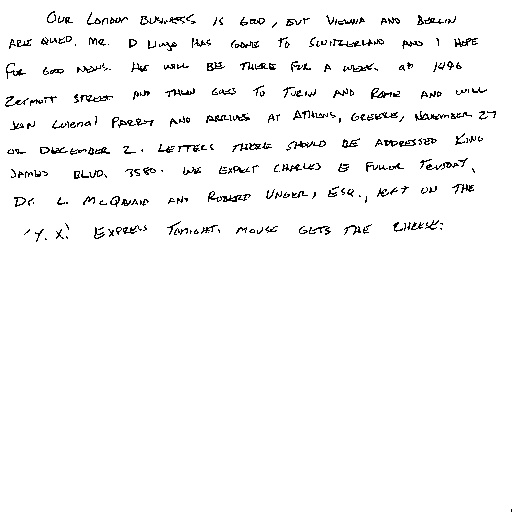 OUR LONDON BUSINESS IS GOOD, BUT VIENNA AND BERLIN
ARE QUIED. MR. D LLOYD HAS GONE TO SWITZERLAND AND I HOPE
FOR GOOD NEWS. HE WILL BE THERE FOR A WEEK. AT 1496
ZERMOTT STREET AND THEN GOES TO TURIN AND ROME AND WILL
JOIN COLONAL PARRY AND ARRIVES AT ATHENS, GREECE, NOVEMBER 27
OR DECEMBER 2. LETTERS THERE SHOULD BE ADDRESSED KING
JAMES BLVD. 3580. WE EXPECT CHARLES E FULLOR TUESDAY.
DR. L. MCQUAID AND ROBERT UNGER, ESQ., LEFT ON THE
'Y.X.' EXPRESS TONIGHT. MOUSE GETS THE CHEESE.